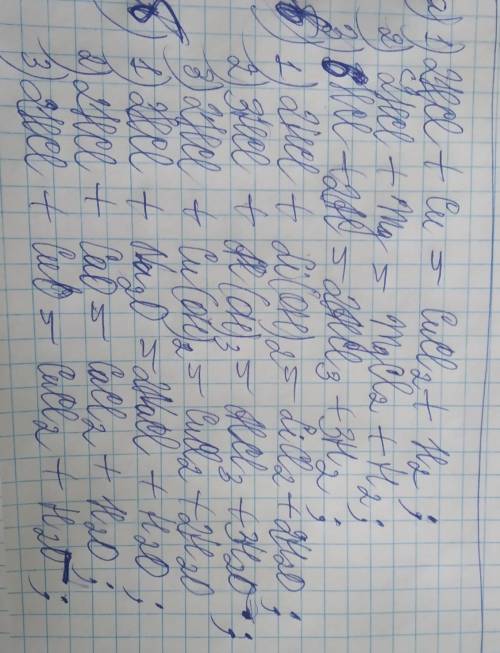 а) 1) 2HCl + Cu = CuCl2 + H2;
2) 2HCl + Mg = MgCl2 + H2;
3) 6HCl + 2Al = 2AlCl3 + 3H2;
б) 1) 2HCl + Li(OH)2 = LiCl2 + 2H2O;
2) 3HCl + Al(OH)3 = AlCl3 + 3H2O;
3) 2HCl + Cu(OH)2 = CuCl2 + 2H2O
в) 1) 2HCl + Na2O = 2NaCl + H2O;
2) 2HCl + CaO = CaCl2 + H2O;
3) 2HCl + CuO = CuCl2 + H2O;